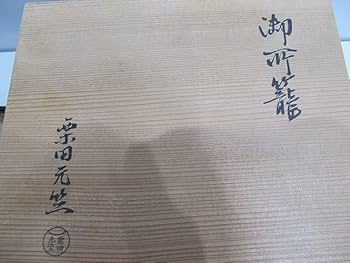 御所籠
栗田元笠